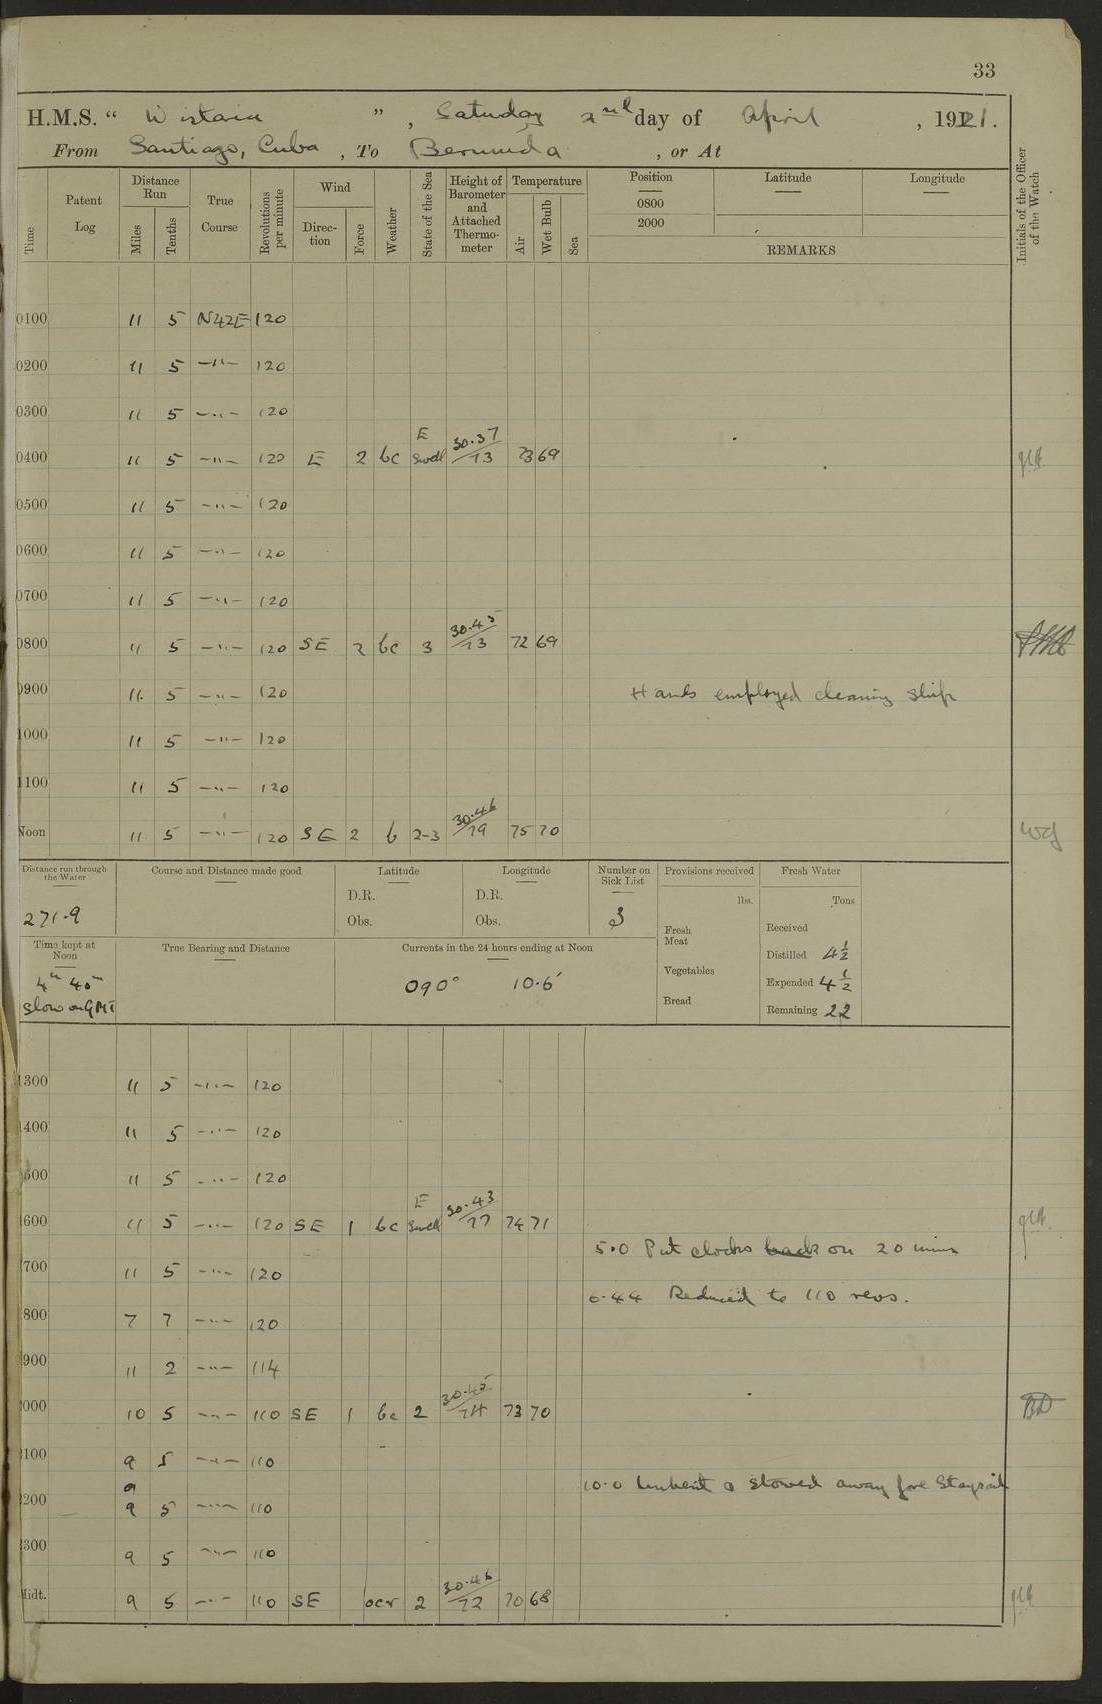 33
H.M.S. “ Wistaria ” , Saturday 2nd day of April , 1921.
From Santiago, Cuba , To Bermuda , or At
Time Patent Log Distance Run Miles Tenths True Course Revolutions per minute Wind Direction Force Weather State of the Sea Height of Barometer and Attached Thermometer Temperature Air Wet Bulb Sea Position 0800 2000 Latitude Longitude REMARKS Initials of the Officer of the Watch
0100 11 5 N42E 120
0200 11 5 —"— 120
0300 11 5 —"— 120
0400 11 5 —"— 120 E 2 bc E Swell 30.37/73 73 69
0500 11 5 —"— 120
0600 11 5 —"— 120
0700 11 5 —"— 120
0800 11 5 —"— 120 SE 2 bc 3 30.45/73 72 69
0900 11 5 —"— 120 Hands employed cleaning ship
1000 11 5 —"— 120
1100 11 5 —"— 120
Noon 11 5 —"— 120 SE 2 b 2-3 30.46/79 75 70
Distance run through the Water Course and Distance made good Latitude Longitude Number on Sick List Provisions received Fresh Water
D.R. D.R. lbs. Tons
271.9 Obs. Obs. 3 Fresh Meat Received
Time kept at Noon True Bearing and Distance Currents in the 24 hours ending at Noon Distilled 4½
4h 40m 090° 10.6' Vegetables Expended 4½
Slow on GMT Bread Remaining 22
1300 11 5 —"— 120
1400 11 5 —"— 120
1500 11 5 —"— 120
1600 11 5 —"— 120 SE 1 bc E Swell 30.43/77 74 71
5.0 Put clocks back on 20 mins
1700 11 5 —"— 120
6.44 Reduced to 110 revs.
1800 7 7 —"— 120
1900 11 2 —"— 114
2000 10 5 —"— 110 SE 1 bc 2 30.45/74 73 70
2100 9 5 —"— 110
9 10.0 Unbent & stowed away fore Staysail
2200 9 5 —"— 110
2300 9 5 —"— 110
Midt. 9 5 —"— 110 SE ocr 2 30.46/72 70 68